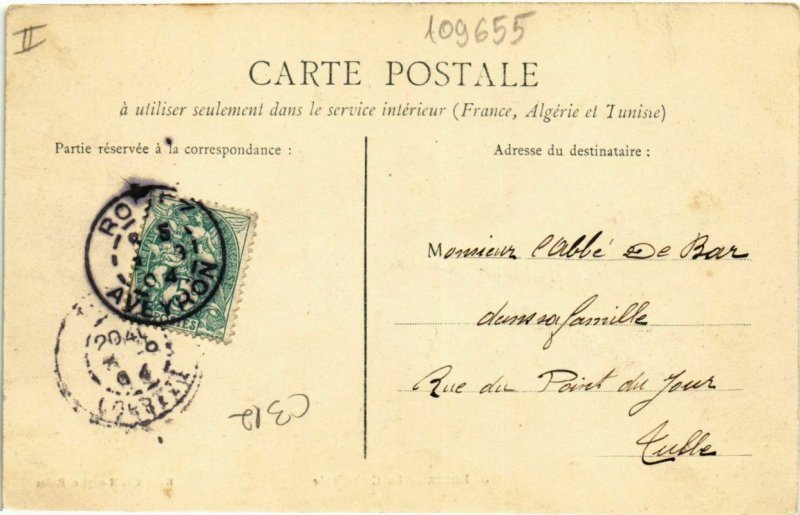 II
109655
CARTE POSTALE
à utiliser seulement dans le service intérieur (France, Algérie et Tunisie)
Partie réservée à la correspondance :
Adresse du destinataire :
Monsieur l'Abbé De Bar
dans sa famille
Rue du Point du Jour
Tulle
RODEZ
AVEYRON
POSTES
04
CORREZE